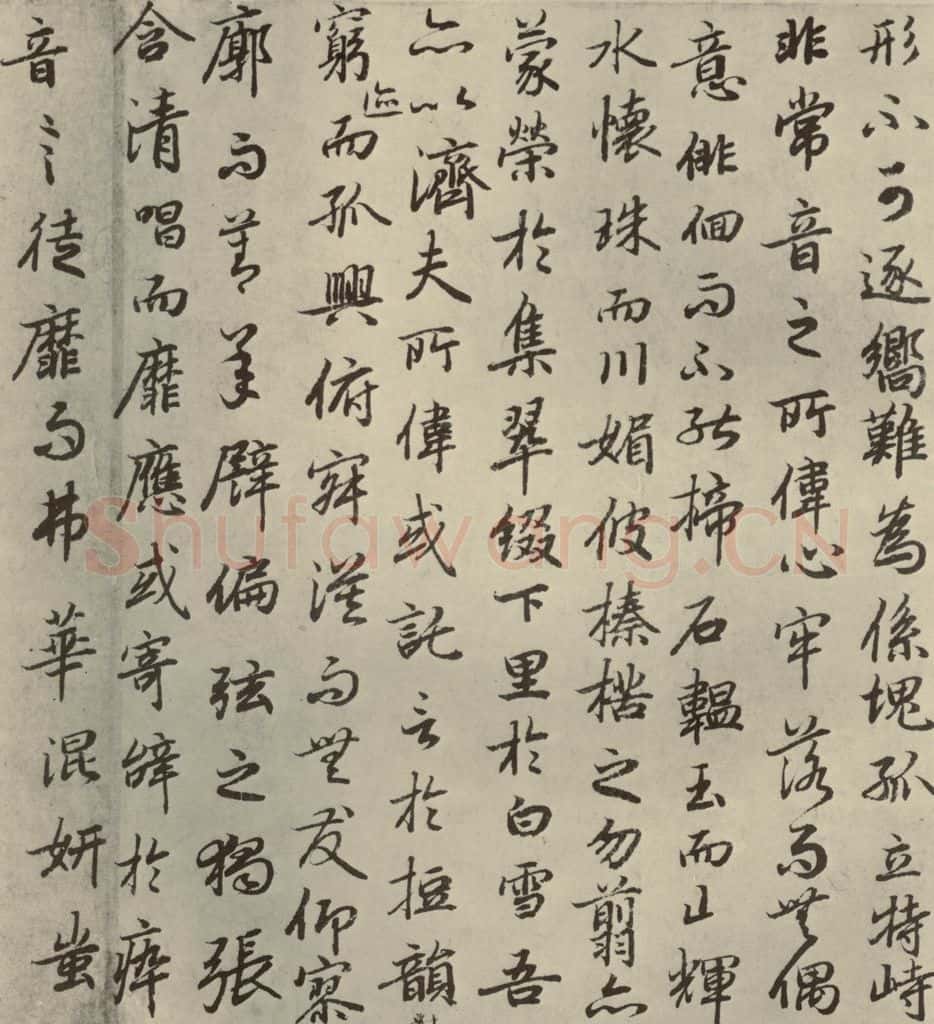 形不可逐嚮難為係塊孤立特峙
非常音之所偉心牢落而無偶
意俳佪而不能揥石韞玉而山輝
水懷珠而川媚彼榛楛之勿翦亦
蒙榮於集翠綴下里於白雪吾
亦以濟夫所偉或託言於短韻對
窮迹而孤興俯寂漠而無友仰寥
廓而莫承譬偏弦之獨張
含清唱而靡應或寄辭於瘁
音言徒靡而弗華混妍蚩
Shufawang.CN